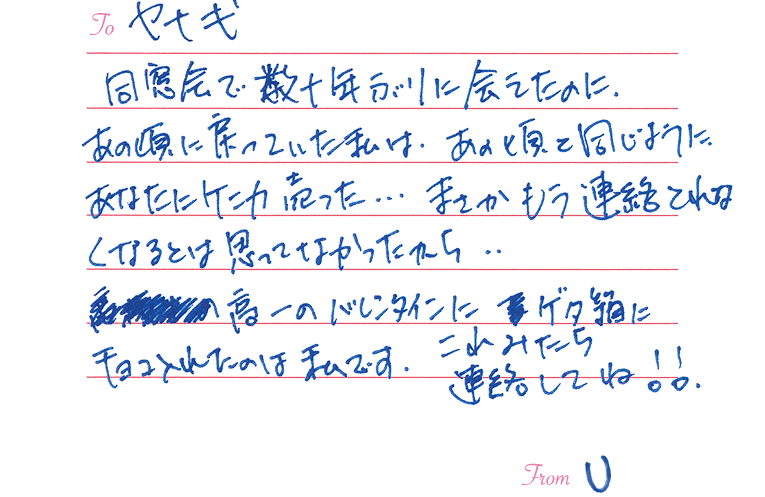 To ヤナギ
同窓会で数十年ぶりに会えたのに、
あの頃に戻っていた私は、あの頃と同じように、
あなたにケンカ売った… まさかもう連絡とれな
くなるとは思ってなかったから‥
高一のバレンタインに ゲタ箱に
チョコ入れたのは私です。
これみたら
連絡してね!!。
From U